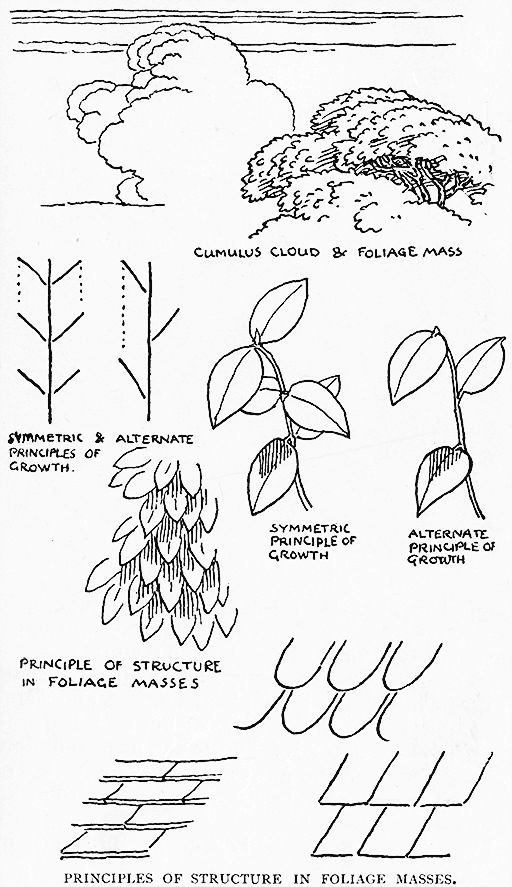 CUMULUS CLOUD & FOLIAGE MASS
SYMMETRIC & ALTERNATE
PRINCIPLES OF
GROWTH.
SYMMETRIC
PRINCIPLE OF
GROWTH
ALTERNATE
PRINCIPLE OF
GROWTH
PRINCIPLE OF STRUCTURE
IN FOLIAGE MASSES
PRINCIPLES OF STRUCTURE IN FOLIAGE MASSES.